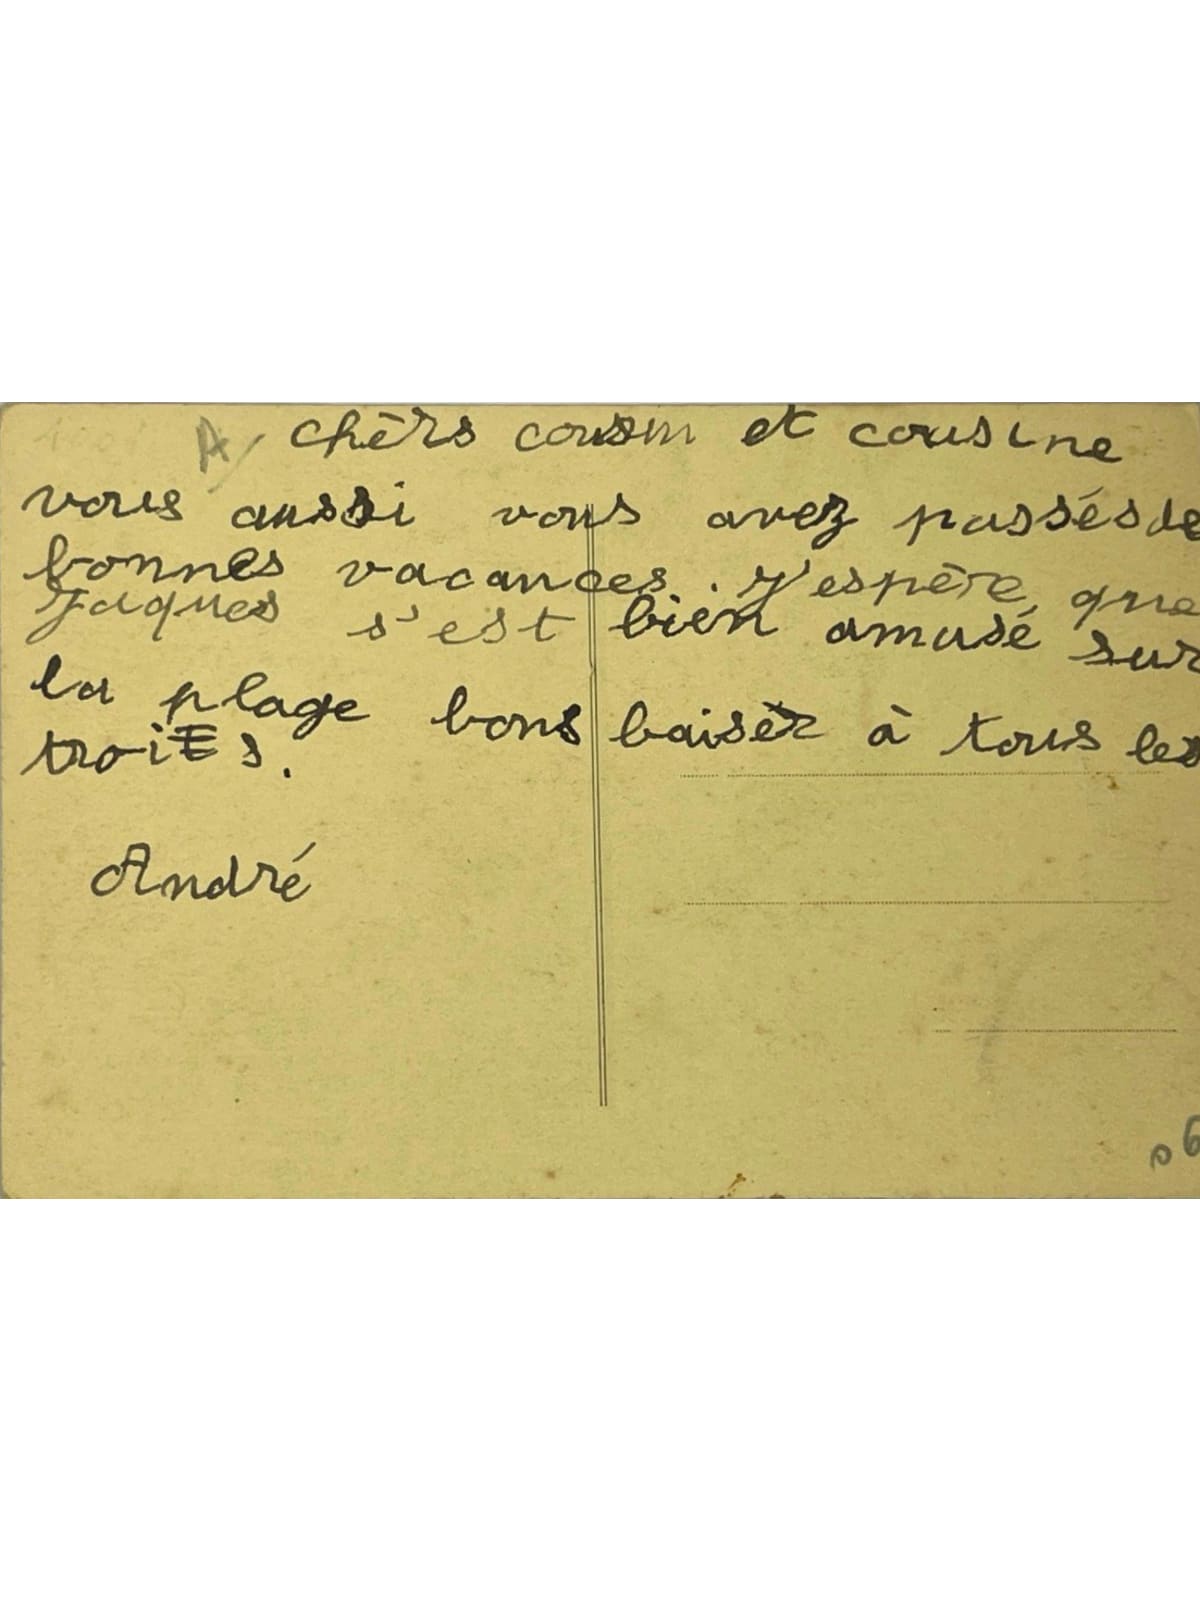 A chèrs cousin et cousine
vous aussi vous avez passés de
bonnes vacances. J'espère que
Jaques s'est bien amusé sur
la plage bons baisèr à tous les
trois.
André
06